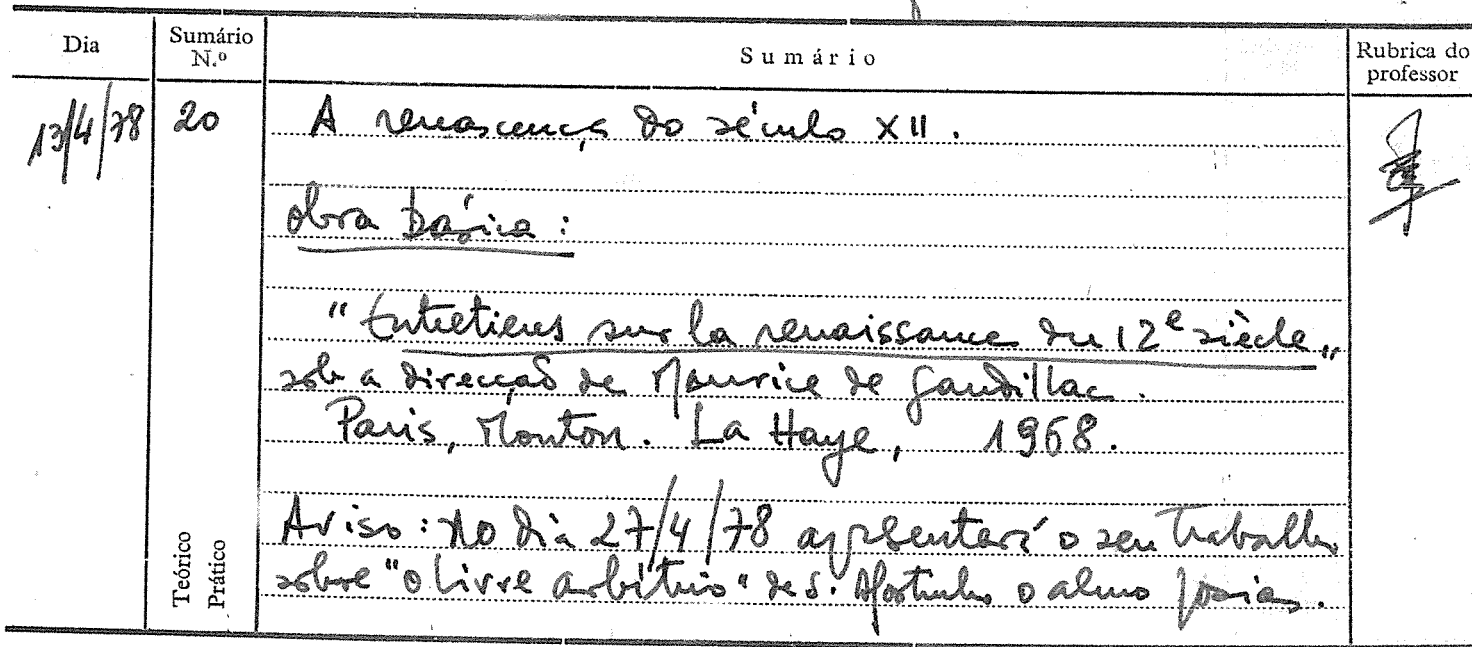 Dia
Sumário N.º
Sumário
Rubrica do professor
13/4/78
20
A renascença do século XII.
obra básica:
"Entretiens sur la renaissance du 12e siècle"
sob a direcção de Maurice de Gandillac.
Paris, Mouton. La Haye, 1968.
Aviso: No dia 27/4/78 apresentará o seu trabalho
sobre "o livre arbítrio" de S. Agostinho o aluno Josias.
Teórico
Prático